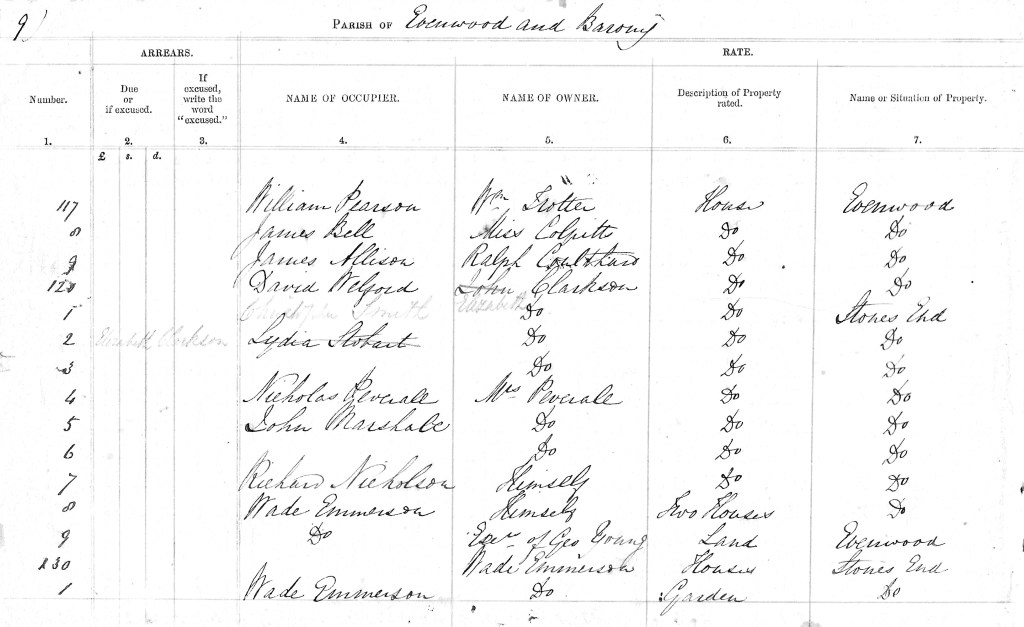 9) PARISH OF Evenwood and Barony
ARREARS. RATE.
Number. Due or if excused. If excused, write the word "excused." NAME OF OCCUPIER. NAME OF OWNER. Description of Property rated. Name or Situation of Property.
1. 2. 3. 4. 5. 6. 7.
£ s. d.
117 William Pearson Wm Trotter House Evenwood
8 James Bell Miss Colpitts Do Do
9 James Allison Ralph Coulthard Do Do
120 David Welford John Clarkson Do Do
Elizabeth
1 Christopher Smith Do Do Stones End
2 Elizabeth Clarkson Lydia Stobart Do Do Do
3 Do Do Do
4 Nicholas Peverale Mrs Peverale Do Do
5 John Marshall Do Do Do
6 Do Do Do
7 Richard Nicholson Himself Do Do
8 Wade Emmerson Himself Two Houses Do
9 Do Exrs of Geo Young Land Evenwood
130 Wade Emmerson Houses Stones End
1 Wade Emmerson Do Garden Do